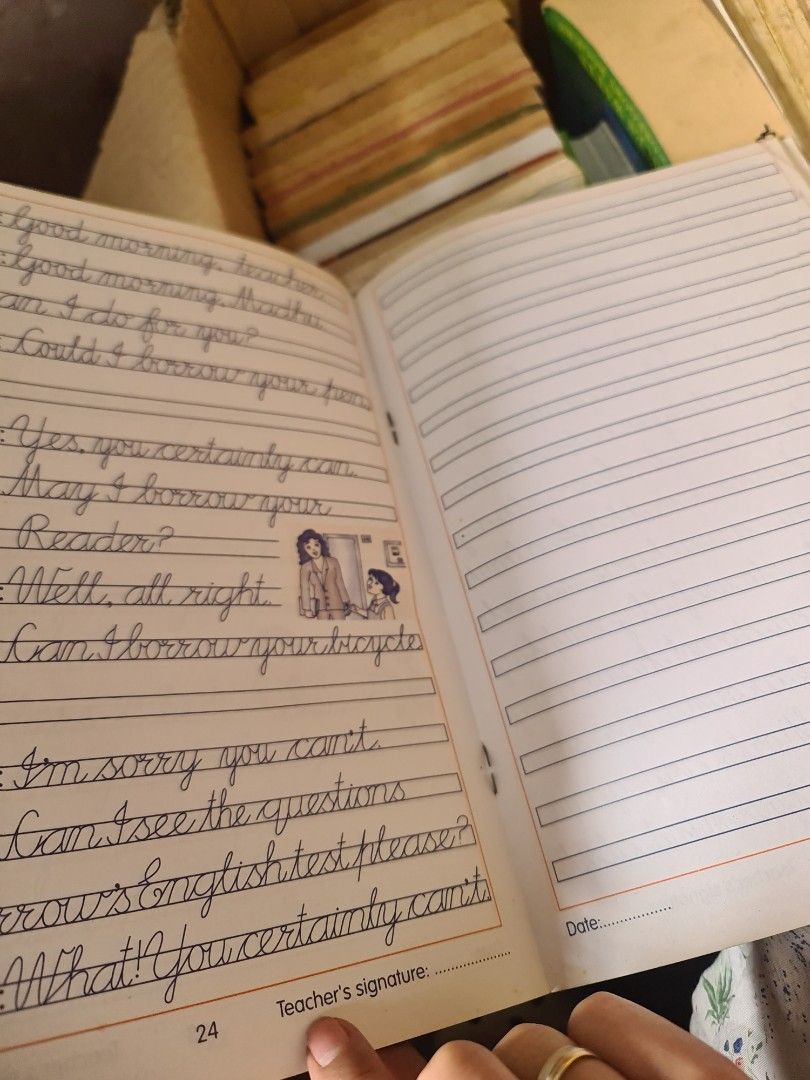 : Good morning, teacher.
: Good morning, Madhu.
an I do for you?
: Could I borrow your pen,
: Yes, you certainly can.
May I borrow your
Reader?
: Well, all right.
Can I borrow your bicycle
: I'm sorry you can't.
Can I see the questions
rrow's English test please?
: What! You certainly can't.
24
Teacher's signature: ..................
Date:..................